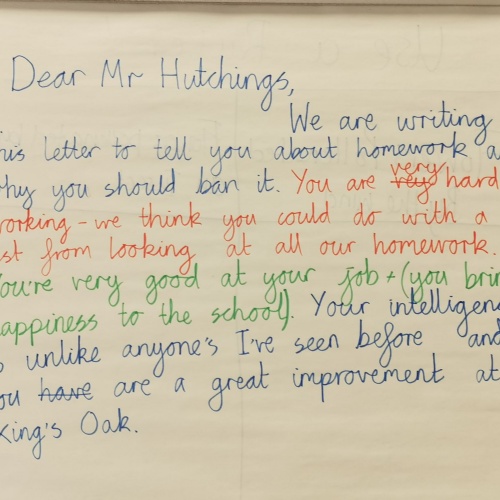 Dear Mr Hutchings,
We are writing
his letter to tell you about homework a
why you should ban it. You are very hard
working - we think you could do with a
st from looking at all our homework.
You're very good at your job + (you brin
appiness to the school). Your intelligen
s unlike anyone's I've seen before and
ou have are a great improvement at
King's Oak.